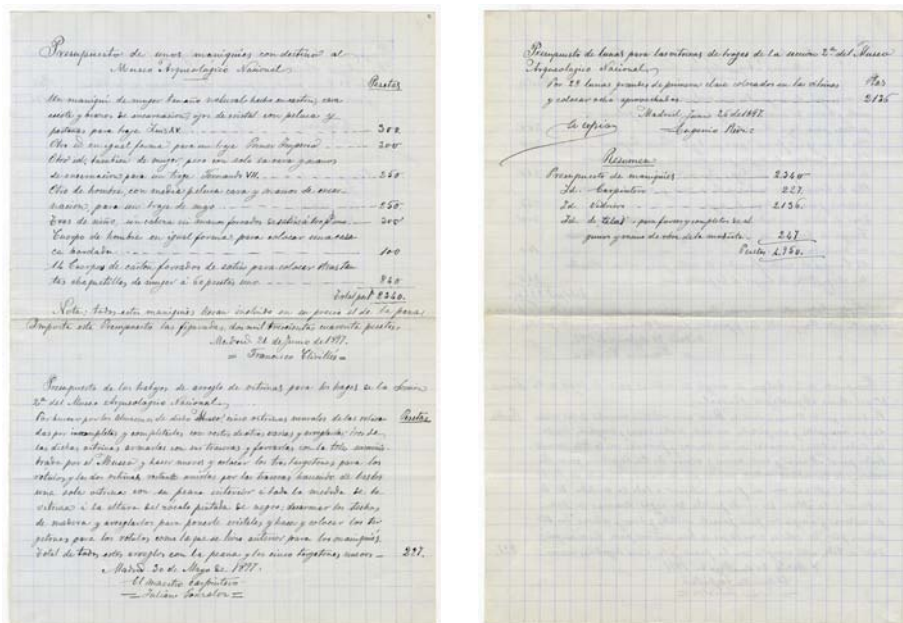 Presupuesto de unos maniquíes con destino al
Museo Arqueologico Nacional
Pesetas
Un maniquí de muger tamaño natural hecho en carton, cara
escote y brazos de encarnacion, ojos de cristal con peluca y
para traje Luis XV. 300
Otro en igual forma para un traje Primer Imperio 300
Otro id; tambien de muger pero con solo la cara y manos
de encarnacion para un traje Fernando VII. 250
Otro de hombre, con media peluca cara y manos de encar-
nacion, para un traje de majo 250
de niño, sin cabeza ni manos forrados 300
Cuerpo de hombre en igual forma para colocar una casa
ca bordada 100
14 Cuerpos de carton forrados de satén para colocar otras tan
tas chaquetillas de muger á 60 pesetas uno 840
Total pas 2340.
Nota; todos estos maniquíes llevan incluido en su precio el de la peana
Importa este Presupuesto las figuradas, dos mil trescientas cuarenta pesetas.
Madrid 21 de Junio de 1897.
= Francisco =
Presupuesto de los trabajos de arreglo de vitrinas para los trages de la Sección
2ª del Museo Arqueologico Nacional
Pesetas
cinco vitrinas murales de las
incompletas y completarlas con otras varias y arreglarlas; tres de
las dichas vitrinas armarlas con sus traseras y forrarlas con la tela suminis-
trada por el Museo y hacer nuevos y colocar los tres targetones para los
rótulos; y las dos vitrinas restante unirlas por las traseras haciendo de las dos
una sola vitrina con su peana interior á toda la medida de la
vitrina á la altura del zocalo pintada de negro; desarmar los techos
de madera y arreglarlos para ponerle cristales y hacer y colocar los tar
getones para los rótulos como la que se hizo anterior para los maniquíes.
Total de todos estos arreglos con la peana y los cinco targetones nuevos 227.
Madrid 30 de Mayo de 1897.
El maestro carpintero
= Juliano Gonzalez =
Presupuesto de lunas para las vitrinas de trages de la sección 2ª del Museo
Arqueologico Nacional
Ptas
Por 29 lunas grandes de primera clase colocadas en las vitrinas
y colocar ocho aprovechadas 2136
Madrid Junio 26 de 1897.
Es copia Eugenio
Resumen
Presupuesto de maniquíes 2340
Id. Carpintero 227.
Id. Vidriero 2136.
Id. de telas para forrar y completar
y mano de obra de la modista 247
Pesetas 4.950.